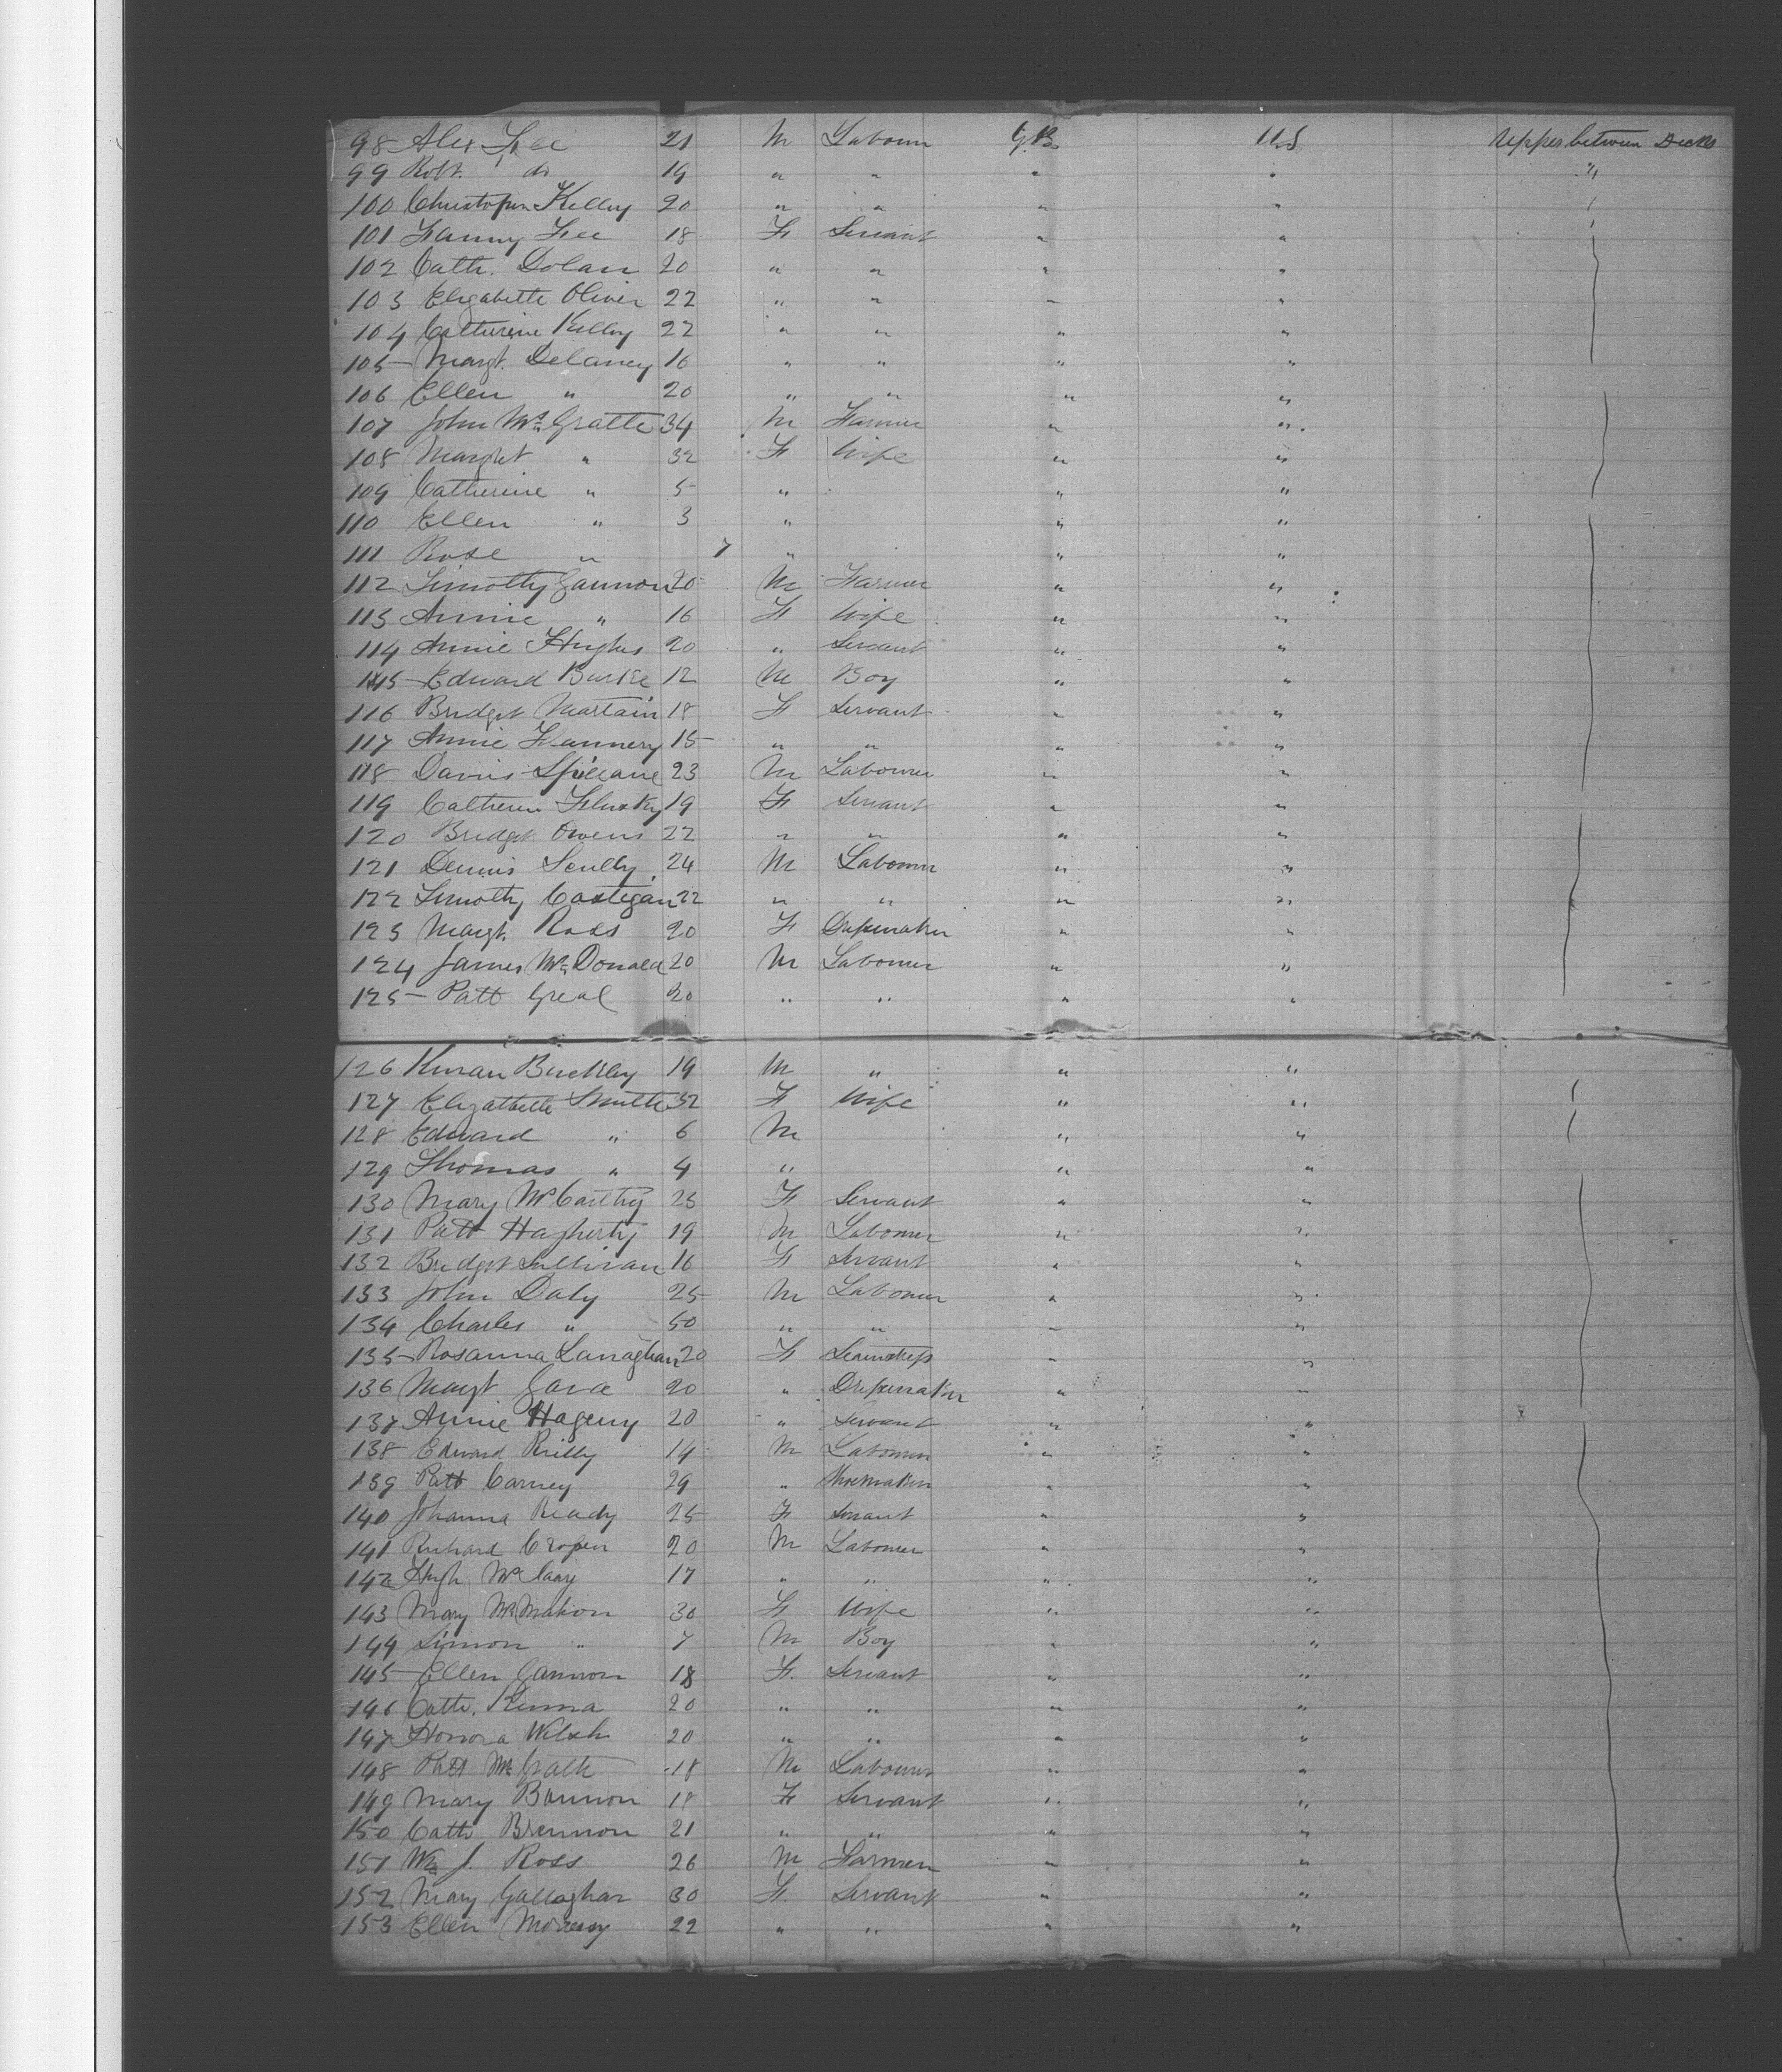 98 Alex Fee 21 M Labourer G.B. U.S Upper between Decks
99 Robt. do 19 " " " " "
100 Christopher Kelley 20 " " " "
101 Fanny Fee 18 F Servant " "
102 Cath. Dolan 20 " " " "
103 Elizabeth Oliver 22 " " " "
104 Catherine Kelley 22 " " " "
105 Margt. Delaney 16 " " " "
106 Ellen " 20 " " " "
107 John McGrath 34 M Farmer " "
108 Margret " 32 F Wife " "
109 Catherine " 5 " " "
110 Ellen " 3 " " "
111 Rose " 7 " " "
112 Timothy Gannon 20 M Farmer " "
113 Annie " 16 F Wife " "
114 Annie Hughes 20 " Servant " "
115 Edward Burke 12 M Boy " "
116 Bridget Martain 18 F Servant " "
117 Annie Flannery 15 " " " "
118 Spillane 23 M Labourer " "
119 Catherine Flusky 19 F Servant " "
120 Bridget Owens 22 " " " "
121 Dennis Scully 24 M Labourer " "
122 Timothy Costegan 22 " " " "
123 Margt. Ross 20 F Dressmaker " "
124 James McDonald 20 M Labourer " "
125 Patt Greal 20 " " " "
126 Kieran Buckley 19 M " " "
127 Elizabeth Smith 32 F Wife " "
128 Edward " 6 M " "
129 Thomas " 4 " " "
130 Mary McCarthy 25 F Servant " "
131 Patt Hagherty 19 M Labourer " "
132 Bridget Sullivan 16 F Servant " "
133 John Daly 25 M Labourer " "
134 Charles " 50 " " " "
135 Rosanna Lanaghan 20 F Seamstress " "
136 Margt Gara 20 " Dressmaker " "
137 Annie Hageny 20 " Servant " "
138 Edward Reilly 14 M Labourer " "
139 Patt Carney 29 " Shoemaker " "
140 Johanna Ready 25 F Servant " "
141 Richard 20 M Labourer " "
142 Hugh 17 " " " "
143 Mary McMahon 30 F Wife " "
144 Simon " 7 M Boy " "
145 Ellen Gannon 18 F. Servant " "
146 Cath. Kinna 20 " " " "
147 Honora Welsh 20 " " " "
148 Patt McGrath 18 M Labourer " "
149 Mary Bannon 18 F Servant " "
150 Cath Brennon 21 " " " "
151 Wm J. Ross 26 M Farmer " "
152 Mary Gallaghar 30 F. Servant " "
153 Ellen 22 " " " "